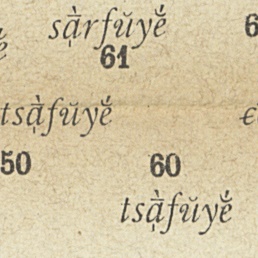 sạ̀rfŭyé̤
61
tsạ̀fŭyé̤
50 60
tsạ̀fŭyé̤